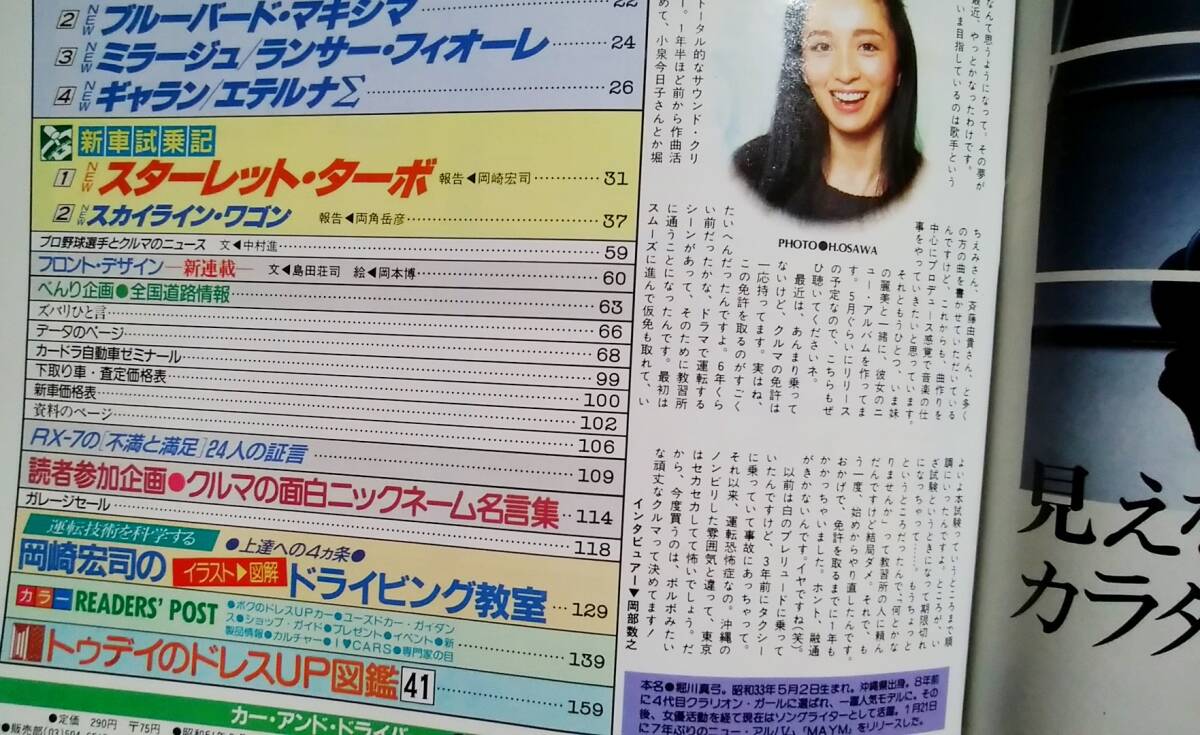 2 NEW ブルーバード・マキシマ 22
3 NEW ミラージュ/ランサー・フィオーレ 24
4 NEW ギャラン/エテルナΣ 26
新車試乗記
1 NEW スターレット・ターボ 報告◀岡崎宏司 31
2 NEW スカイライン・ワゴン 報告◀両角岳彦 37
プロ野球選手とクルマのニュース 文◀中村進 59
フロント・デザイン―新連載― 文◀島田荘司 絵◀岡本博 60
べんり企画●全国道路情報 63
ズバリひと言 66
データのページ 68
カードラ自動車ゼミナール 99
下取り車・査定価格表 100
新車価格表 102
資料のページ 106
RX-7の[不満と満足]24人の証言 109
読者参加企画●クルマの面白ニックネーム名言集 114
ガレージセール 118
運転技術を科学する
●上達への4ヵ条●
岡崎宏司の イラスト▶図解 ドライビング教室 129
カラー READERS' POST
●ボクのドレスUPカー●ユーズドカー・ガイダン
ス●ショップ・ガイド●プレゼント●イベント●新
製品情報●カルチャー●I♥CARS●専門家の目 139
トゥデイのドレスUP図鑑 41 159
●定価 290円 〒75円
カー・アンド・ドライバ
なんて思うようになって。その夢が
最近、やっとかなったわけです。
いま目指しているのは歌手という
トータル的なサウンド・クリ
ー。1年半ほど前から作曲活
めて、小泉今日子さんとか堀
PHOTO●H.OSAWA
ちえみさん、斉藤由貴さん、と多く
の方の曲を書かせていただいている
んですけど、これからも、曲作りを
中心にプロデュース感覚で音楽の仕
事をやっていきたいと思っています。
それともうひとつ、いま妹
の麗美と一緒に、彼女のニ
ュー・アルバムを作ってま
す。5月ぐらいにリリース
の予定なので、こちらもぜ
ひ聴いてくださいネ。
最近は、あんまり乗って
ないけど、クルマの免許は
一応持ってます。実はね、
この免許を取るのがすごく
たいへんだったんですよ。6年くら
い前だったかな、ドラマで運転する
シーンがあって、そのために教習所
に通うことになったんです。最初は
スムーズに進んで仮免も取れて、い
よいよ本試験っていうところまで順
調にいったんですよ。ところが、い
ざ試験というときになって期限切れ
になっちゃって……。もうちょっと
というところだったんで、〝何とかな
りませんか〟って教習所の人に頼ん
だんですけど結局ダメ。それで、も
う一度、始めからやり直したんです。
おかげで、免許を取るまでに1年も
かかっちゃいました。ホント、融通
がきかないんです。イヤですね(笑)。
以前は白のプレリュードに乗って
いたんですけど、3年前にタクシー
に乗っていて事故にあっちゃって。
それ以来、運転恐怖症なの。沖縄の
ノンビリした雰囲気と違って、東京
はセカセカしてて怖いでしょう。だ
から、今度買うのは、ボルボみたい
な頑丈なクルマって決めてます!
インタビュアー▼岡部数之
本名●堀川真弓。昭和33年5月2日生まれ。沖縄県出身。8年前
に4代目クラリオン・ガールに選ばれ、一躍人気モデルに。その
後、女優活動を経て現在はソングライターとして活躍。1月21日
に7年ぶりのニュー・アルバム「MAYM」をリリースした。
見え
カラダ